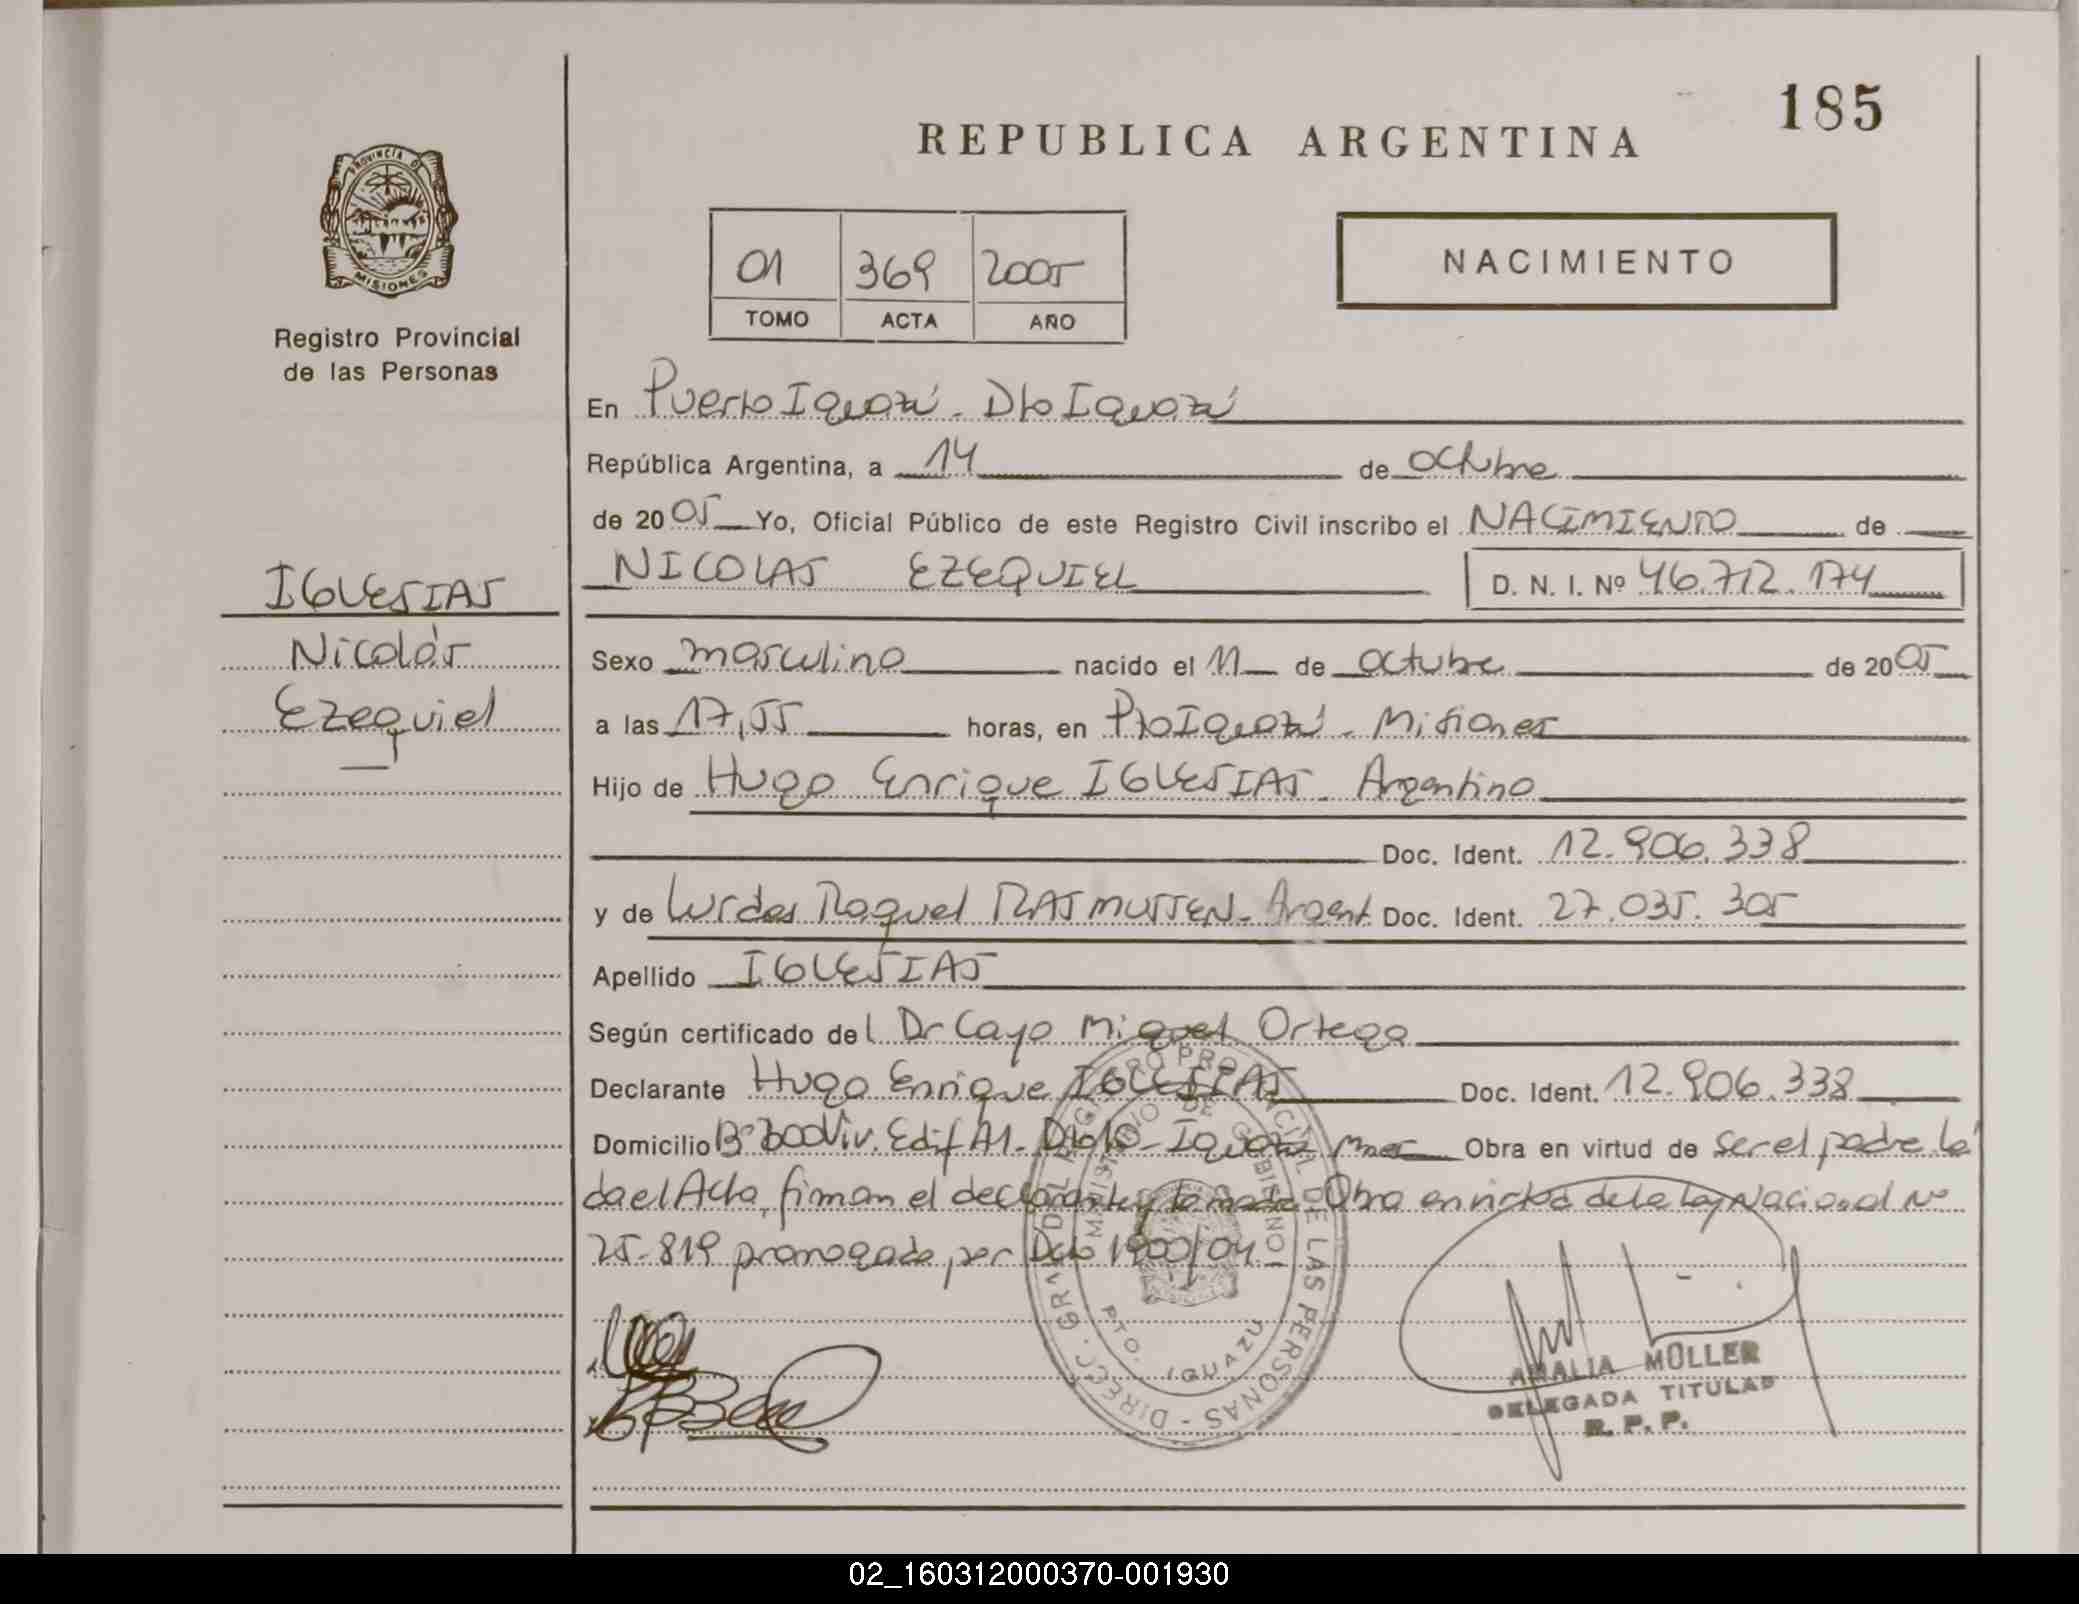 185
REPUBLICA ARGENTINA
PROVINCIA DE
MISIONES
Registro Provincial
de las Personas
01 369 2005
TOMO ACTA AÑO
NACIMIENTO
En Puerto Iguazú - Dto Iguazú
República Argentina, a 14 de octubre
de 2005 Yo, Oficial Público de este Registro Civil inscribo el NACIMIENTO de
IGLESIAS
Nicolás
Ezequiel
NICOLAS EZEQUIEL D. N. I. Nº 46.712.174
Sexo masculino nacido el 11 de octubre de 2005
a las 17,55 horas, en Pto Iguazú - Misiones
Hijo de Hugo Enrique IGLESIAS - Argentino
Doc. Ident. 12.906.338
y de Lurdes Raquel RASMUSSEN - Argent. Doc. Ident. 27.035.305
Apellido IGLESIAS
Según certificado del Dr Cayo Miguel Ortega
Declarante Hugo Enrique IGLESIAS Doc. Ident. 12.906.338
Domicilio Bº 200 Viv. Edif A1 - Dto 10 - Iguazú Obra en virtud de ser el padre. Leí
da el Acta, firman el declarante y la madre. Obra en virtud de la Ley Nacional Nº
25.819 prorrogada por Dcto 1900/04.
DIRECC. GRAL DEL REGISTRO PROVINCIAL DE LAS PERSONAS -
MINISTERIO DE GOBIERNO
PTO. IGUAZU
AMALIA MOLLER
DELEGADA TITULAR
R. P. P.
02_160312000370-001930